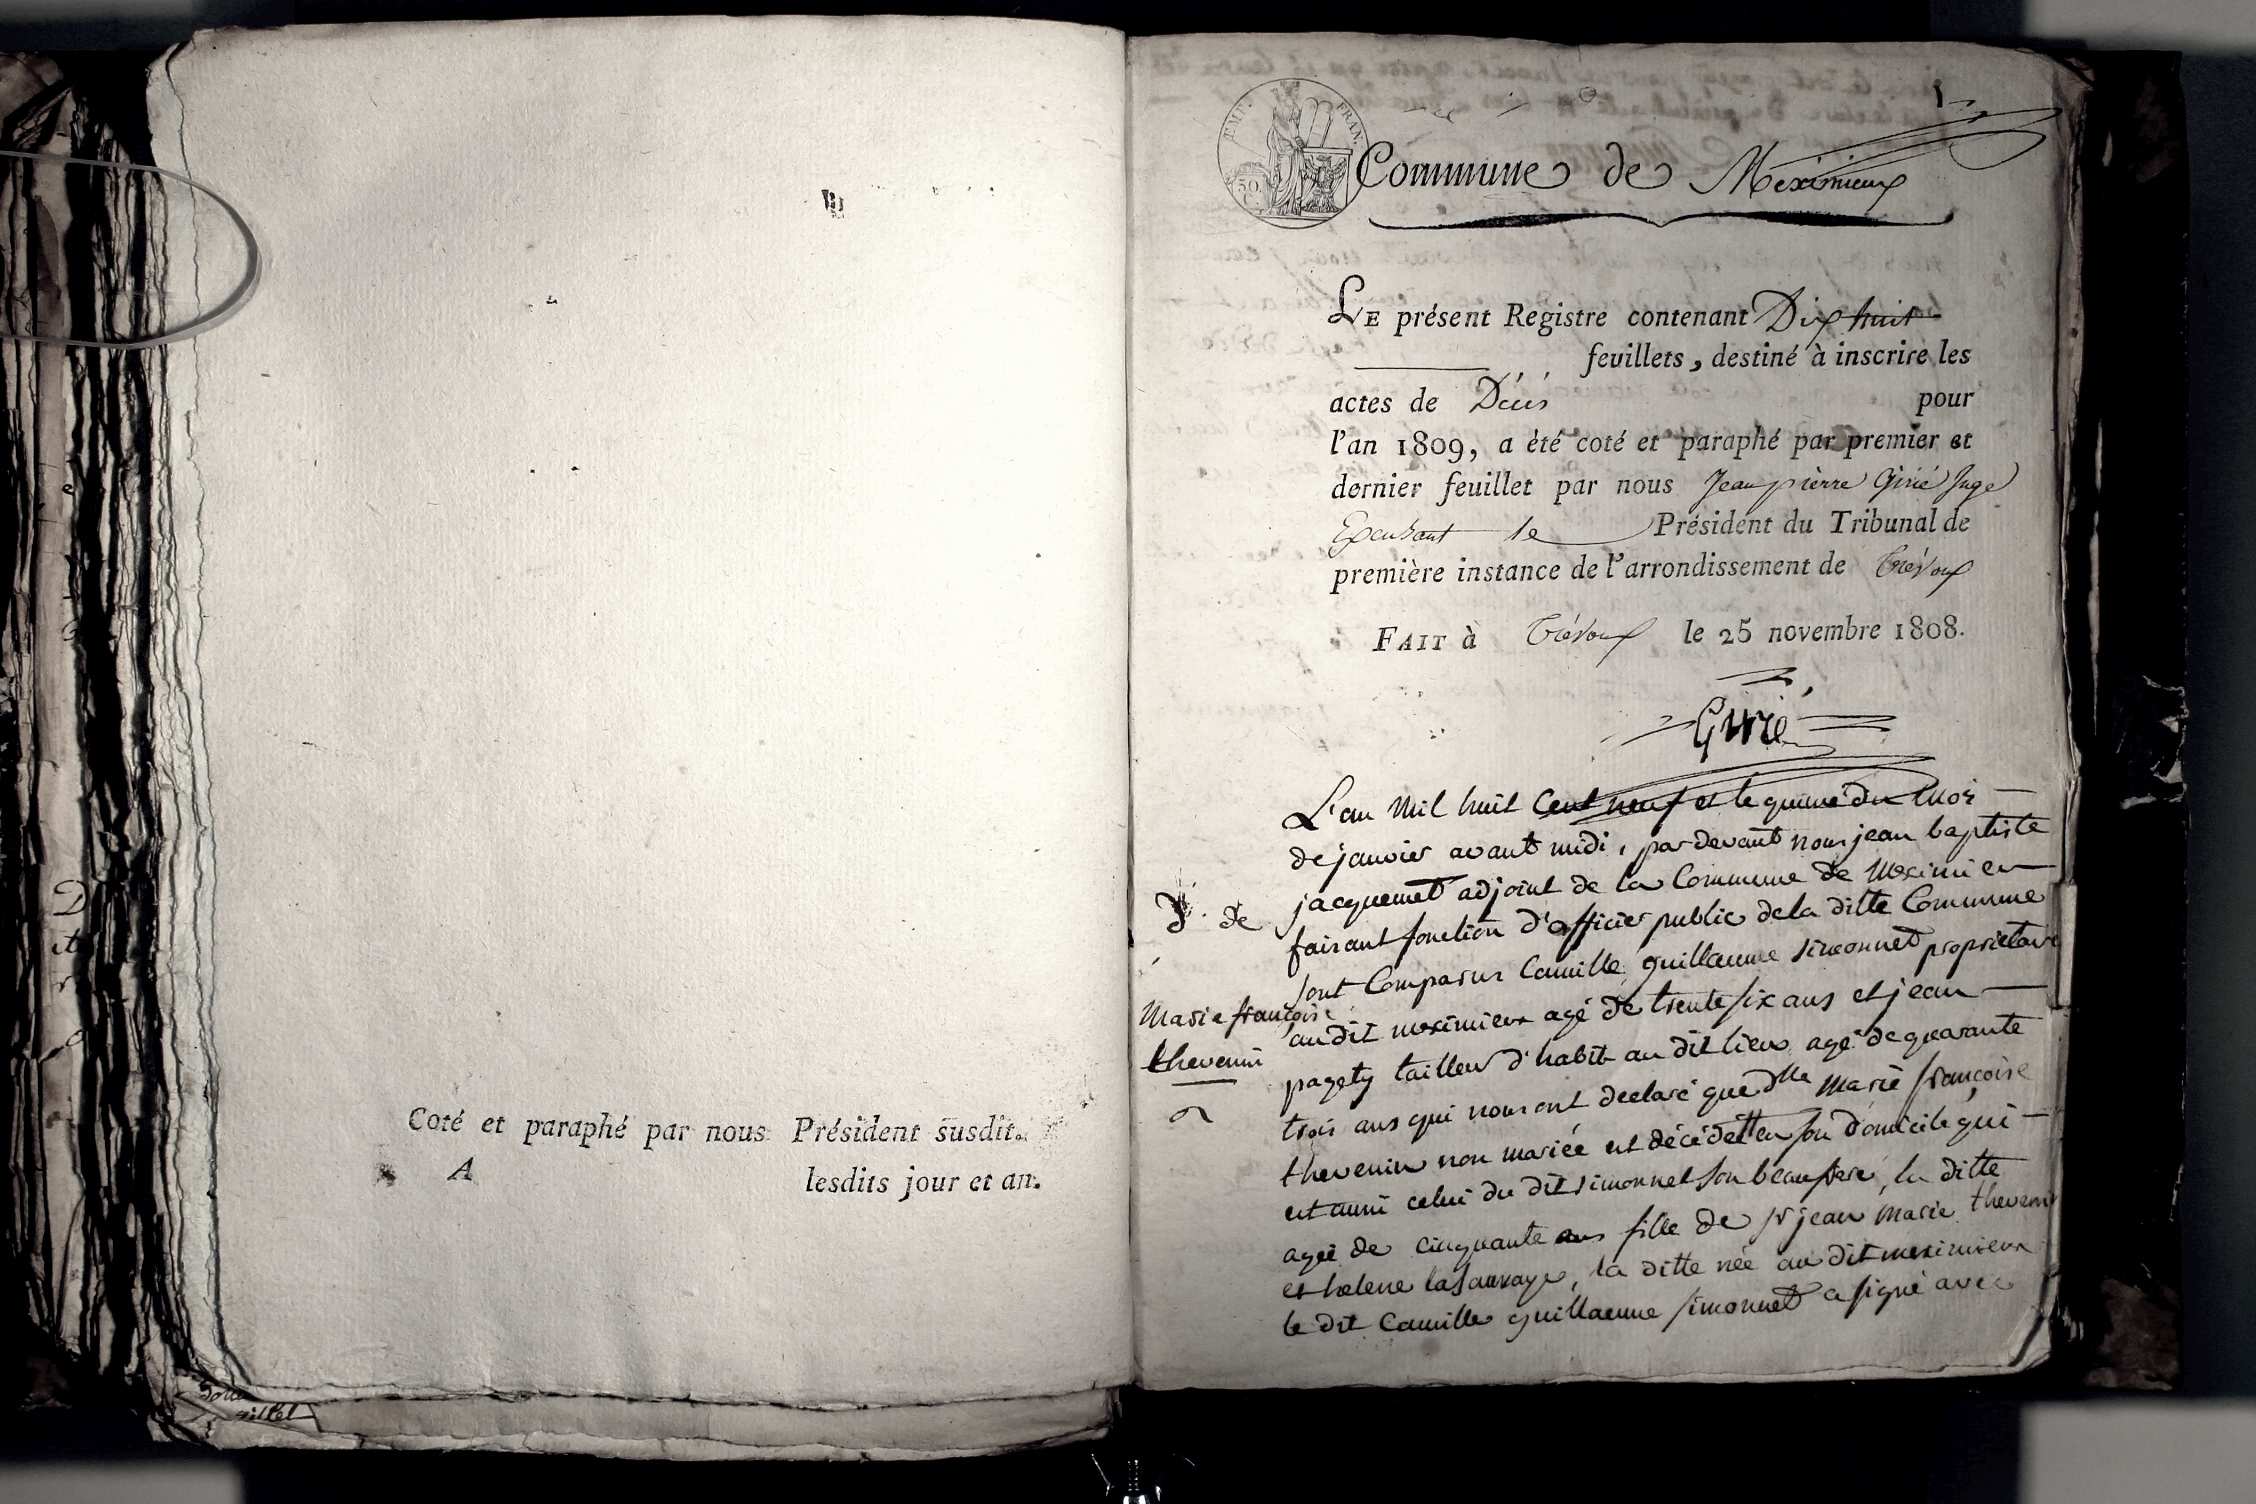 Coté et paraphé par nous Président susdit.
A lesdits jour et an.
EMP. FRAN.
50.
C.
1
Commune de Meximieux
LE présent Registre contenant Dix huit
feuillets, destiné à inscrire les
actes de Décés pour
l'an 1809, a été coté et paraphé par premier et
dernier feuillet par nous Jean pierre Girié Juge
Exerçant le Président du Tribunal de
première instance de l'arrondissement de Trévoux
FAIT à Trévoux le 25 novembre 1808.
Girié
L'an mil huit Cent neuf et le quinze du mois
de janvier avant midi, par devant nous jean baptiste
jacquemet adjoint de la Commune de meximieu
faisant fonction d'officier public de la ditte Commune
sont Comparus Camille guillaume simonnet proprietaire
au dit meximieux agé de trente six ans et jean
pagety tailleur d'habit au dit lieu agé de quarante
trois ans qui nous ont declaré que dlle marie françoise
thevenin non mariée est décédée en son domicile qui
est aussi celui du dit simonnet son beau frere, la ditte
agée de cinquante ans fille de sr jean marie thevenin
et helene lasauvage, la ditte née au dit meximieux
le dit Camille guillaume simonnet a signé avec
D. de
Marie françoise
thevenin